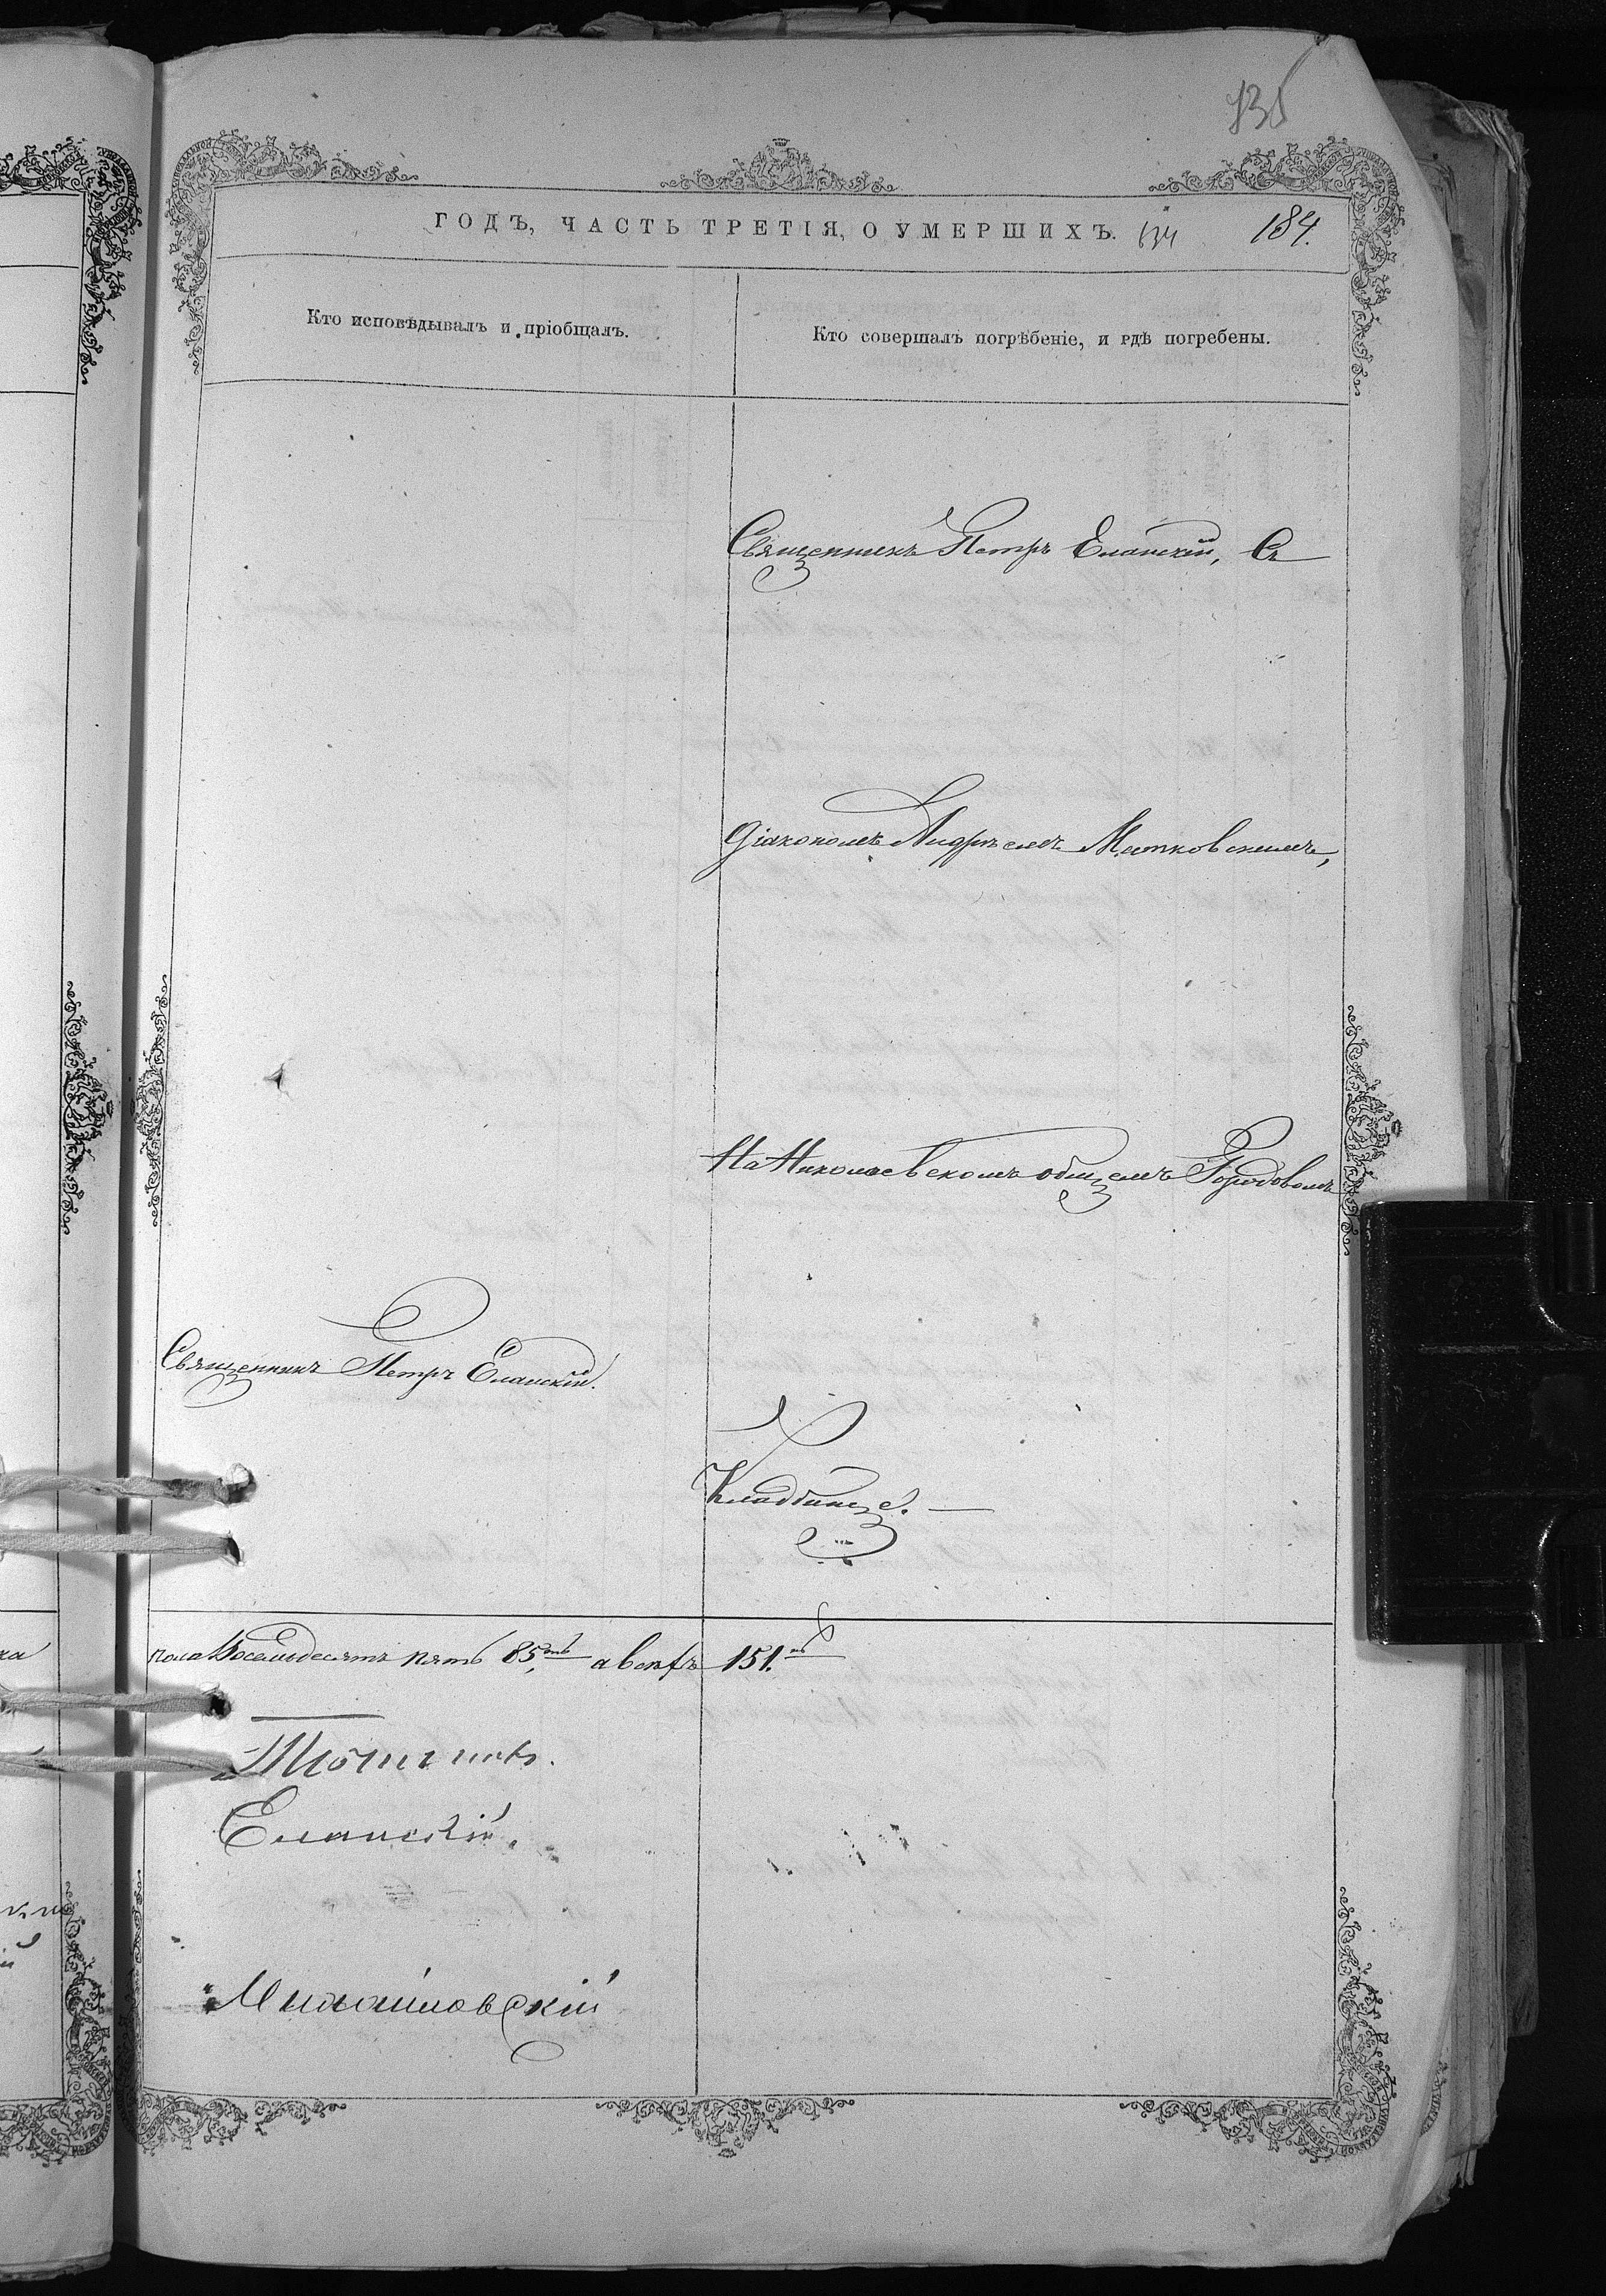 135
ГОДЪ, ЧАСТЬ ТРЕТІЯ, О УМЕРШИХЪ. 134 184.
Кто исповѣдывалъ и пріобщалъ.
Кто совершалъ погрѣбеніе, и гдѣ погребены.
Священникъ Петръ Еланскій, Съ
Діакономъ Андреемъ Митковскимъ,
На Николаевскомъ общемъ Городовомъ
Священникъ Петръ Еланскій.
Кладбищѣ. —
пола Восемьдесятъ пять 85, а всѣхъ 151.
Еланскій.
Михайловскій